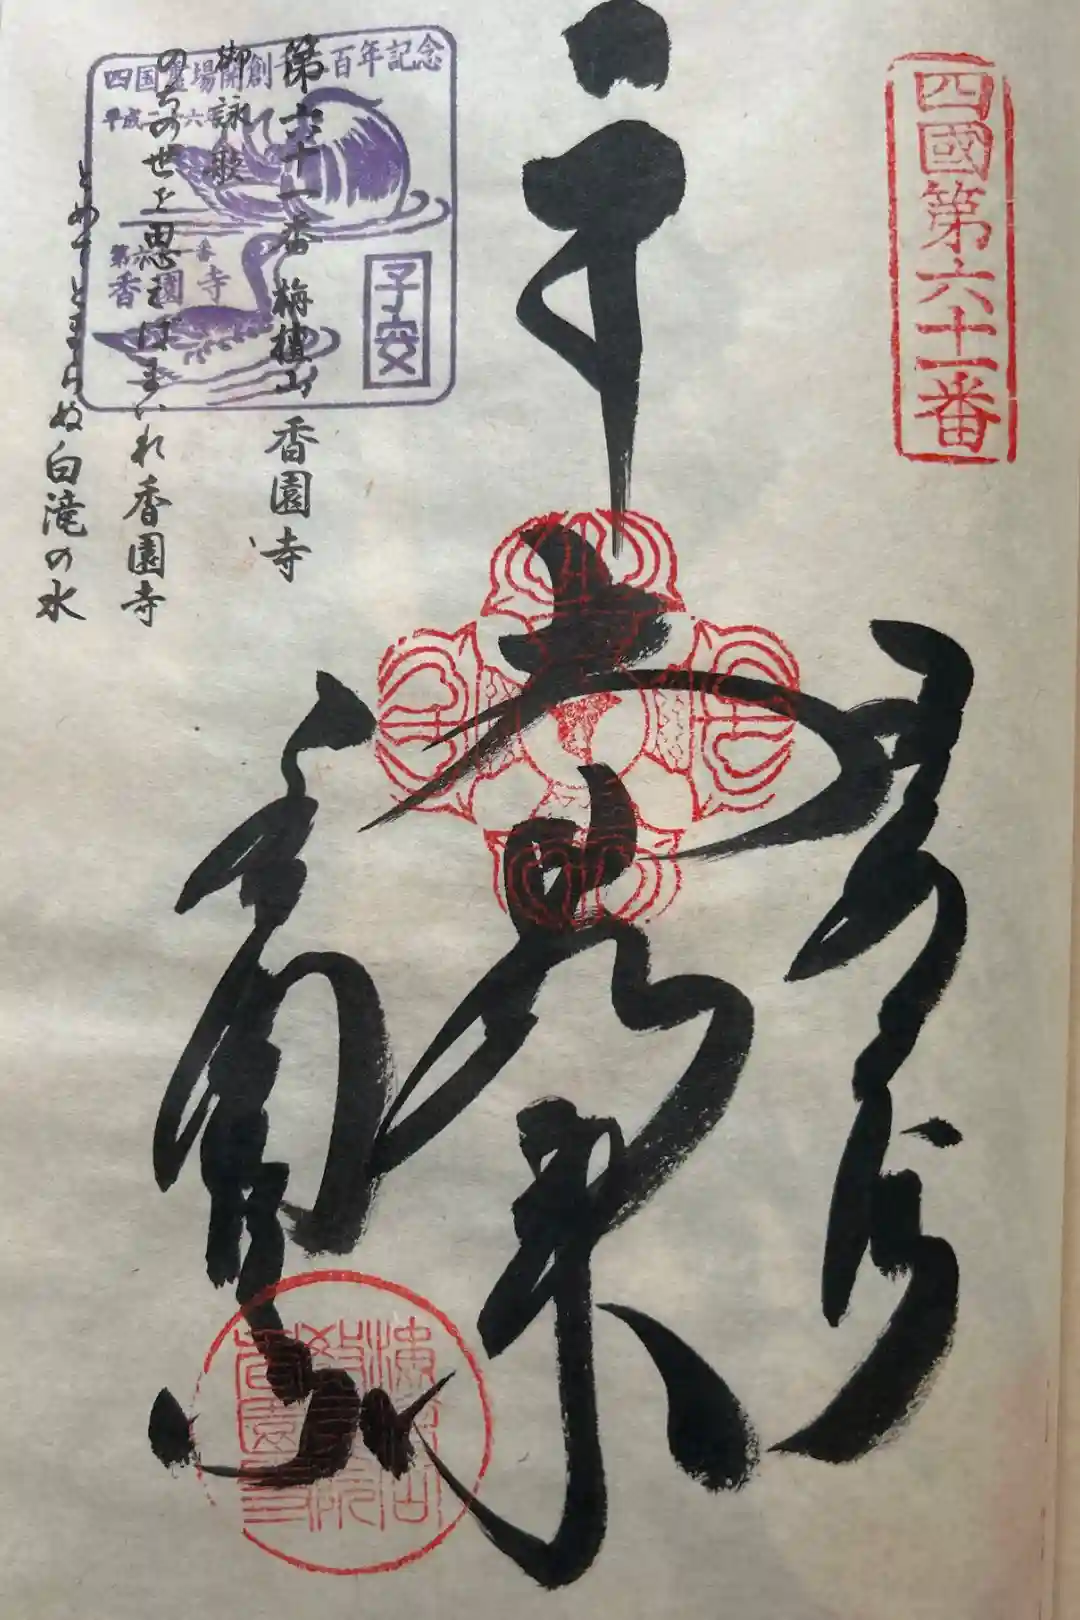 四國第六十一番
大日如来
香園寺
第六十一番 栴檀山 香園寺
御詠歌
のちの世を思えばまいれ香園寺
とめてとまらぬ白滝の水
四国霊場開創千二百年記念
平成二十六年
第六十一番
香園寺
子安